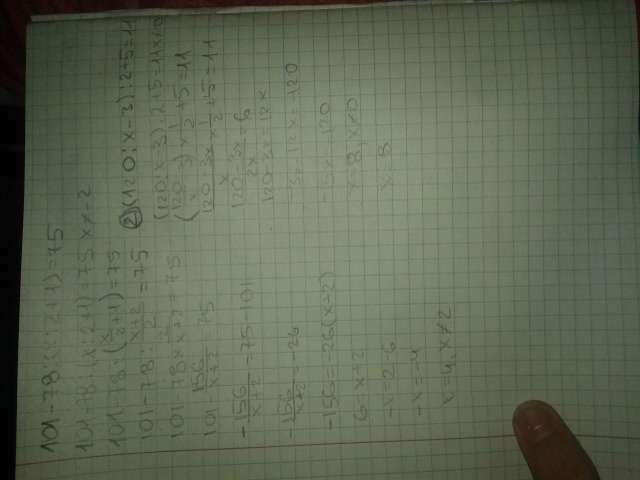 101-78:(x:2+1)=75
101-78:(x:2+1)=75 x≠-2
101-78:(x/2+1)=75
101-78: x+2/2 =75
101-78× 2/x+2 =75
101- 156/x+2 =75
- 156/x+2 =75-101
- 156/x+2 =-26
-156=-26(x+2)
6=x+2
-x=2-6
-x=-4
x=4, x≠2
② (120:x-3):2+5=11
(120:x-3):2+5=11 x≠0
(120/x -3)× 1/2 +5=11
120-3x/x × 1/2 +5=11
120-3x/2x =6
120-3x=12x
-3x-12x=-120
-15x=-120
x=8, x≠0
x=8